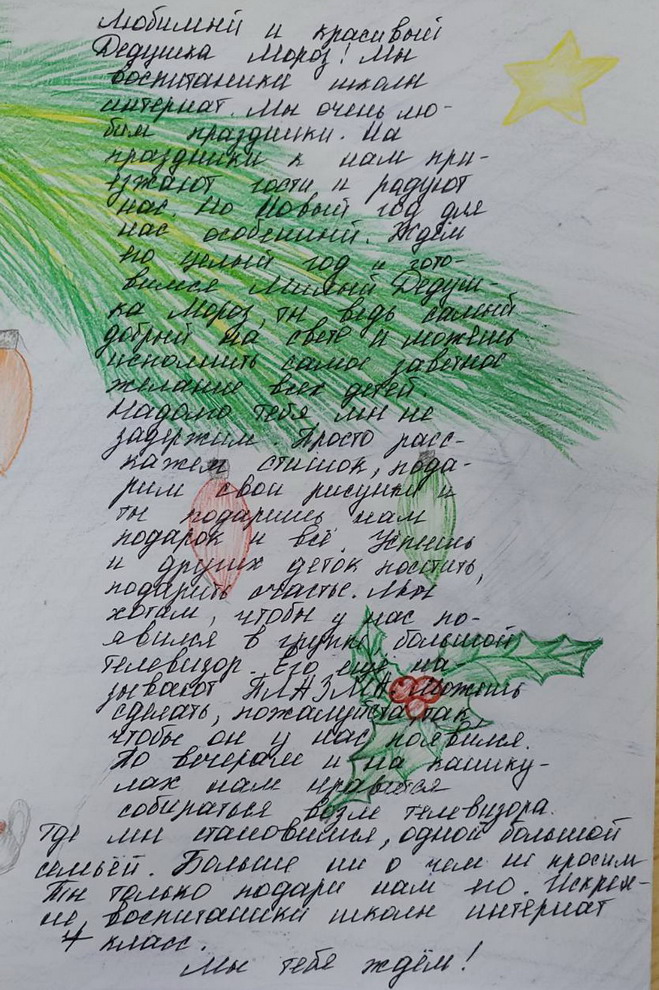 Любимий и красивый
Дедушка Мороз! Мы
воспитаники школы
интернат. Мы очень лю-
бим праздники. На
праздники к нам при-
езжают гости и радуют
нас. Но Новый год для
нас особенний. Ждём
его целый год и гото-
вимся. Милый Дедуш-
ка Мороз, ты ведь самый
добрый на свете и можешь
исполнить самое заветное
желание всех детей.
Надолго тебя мы не
задержим. Просто расс-
кажем стишок, пода-
рим свои рисунки и
ты подаришь нам
подарок и всё. Успеешь
и других деток постить,
подарить счастье. Мы
хотим, чтобы у нас по-
явился в групе большой
телевизор. Его ещё на-
зывают ПЛАЗМА. Можешь
сделать, пожалуйста, так,
чтобы он у нас появился.
По вечерам и на канику-
лах нам нравится
собираться возле телевизора.
Где мы становимся, одной большой
семьёй. Больше ни о чем не просим
Ты только подари нам его. Искрен-
не, воспитаники школы интернат
4 класс.
Мы тебя ждём!